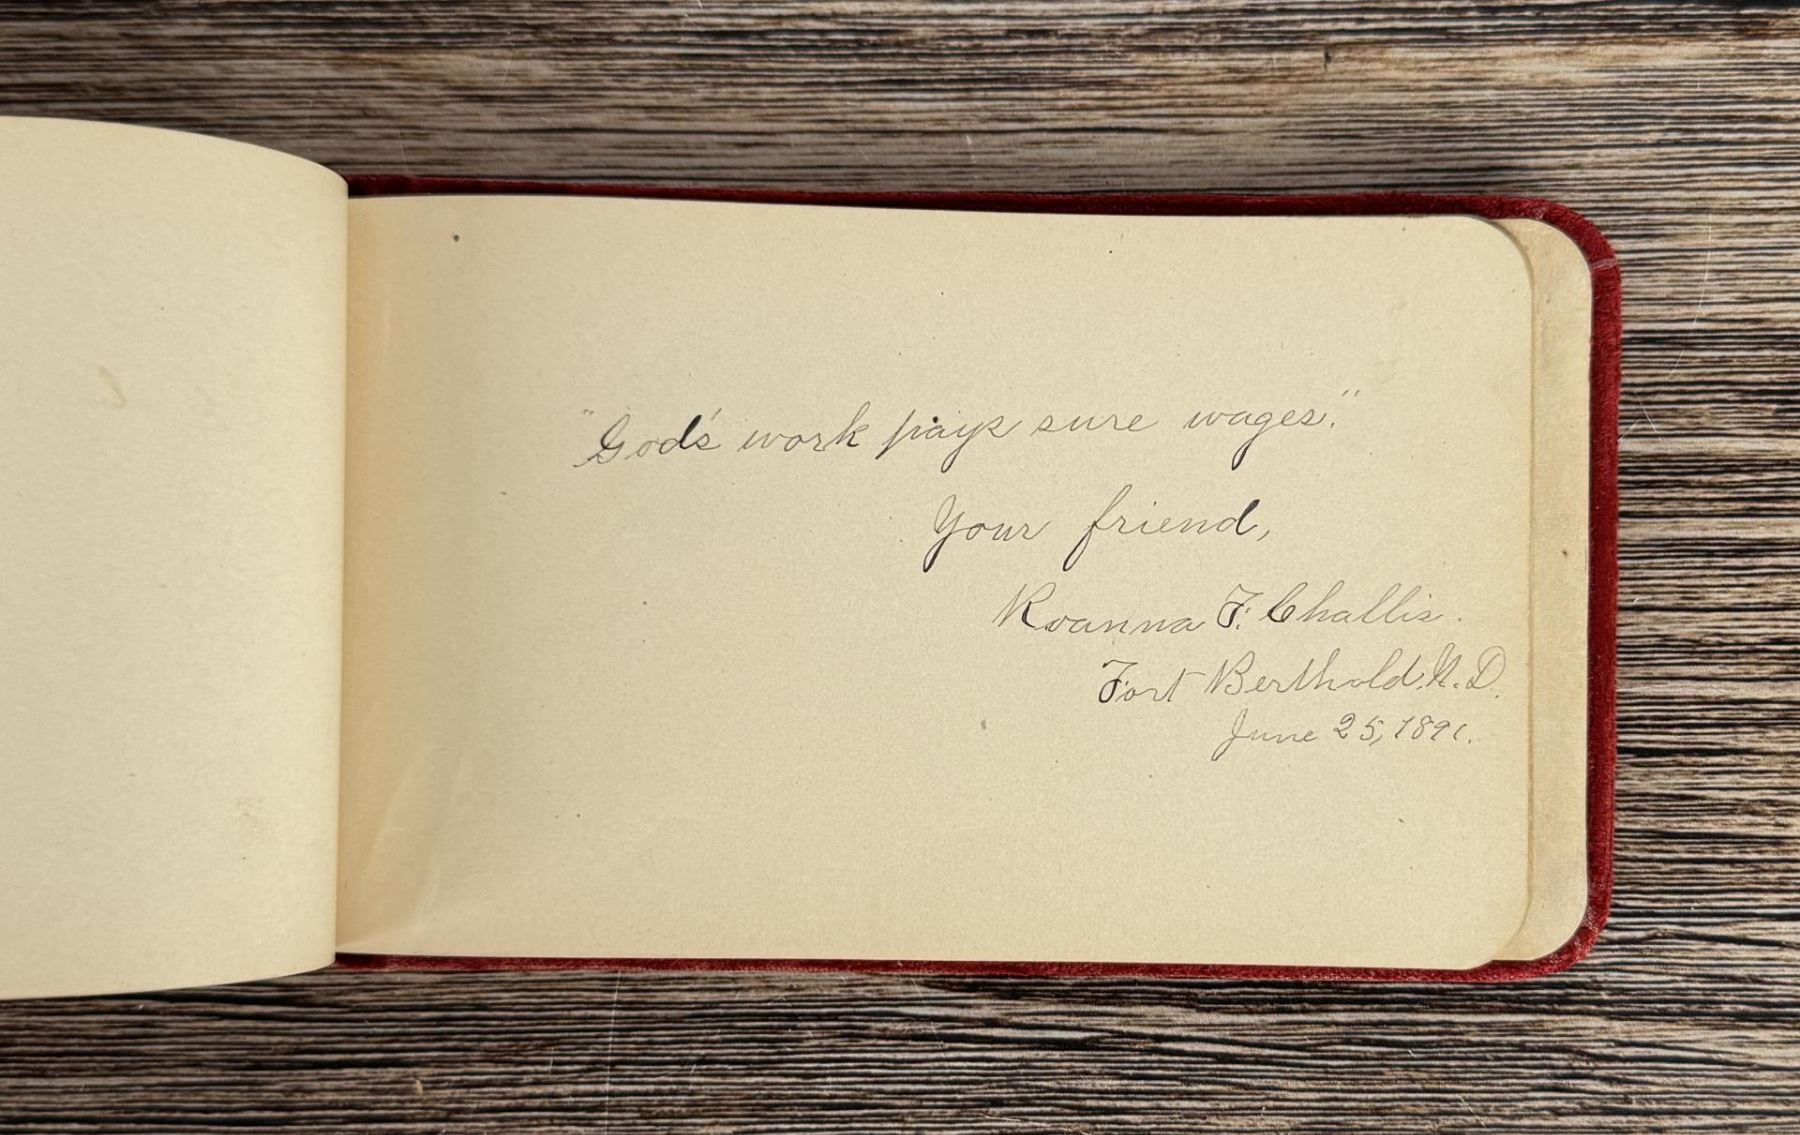 "God's work pays sure wages."
Your friend,
Roanna F. Challis.
Fort Berthold, N. D.
June 25, 1891.